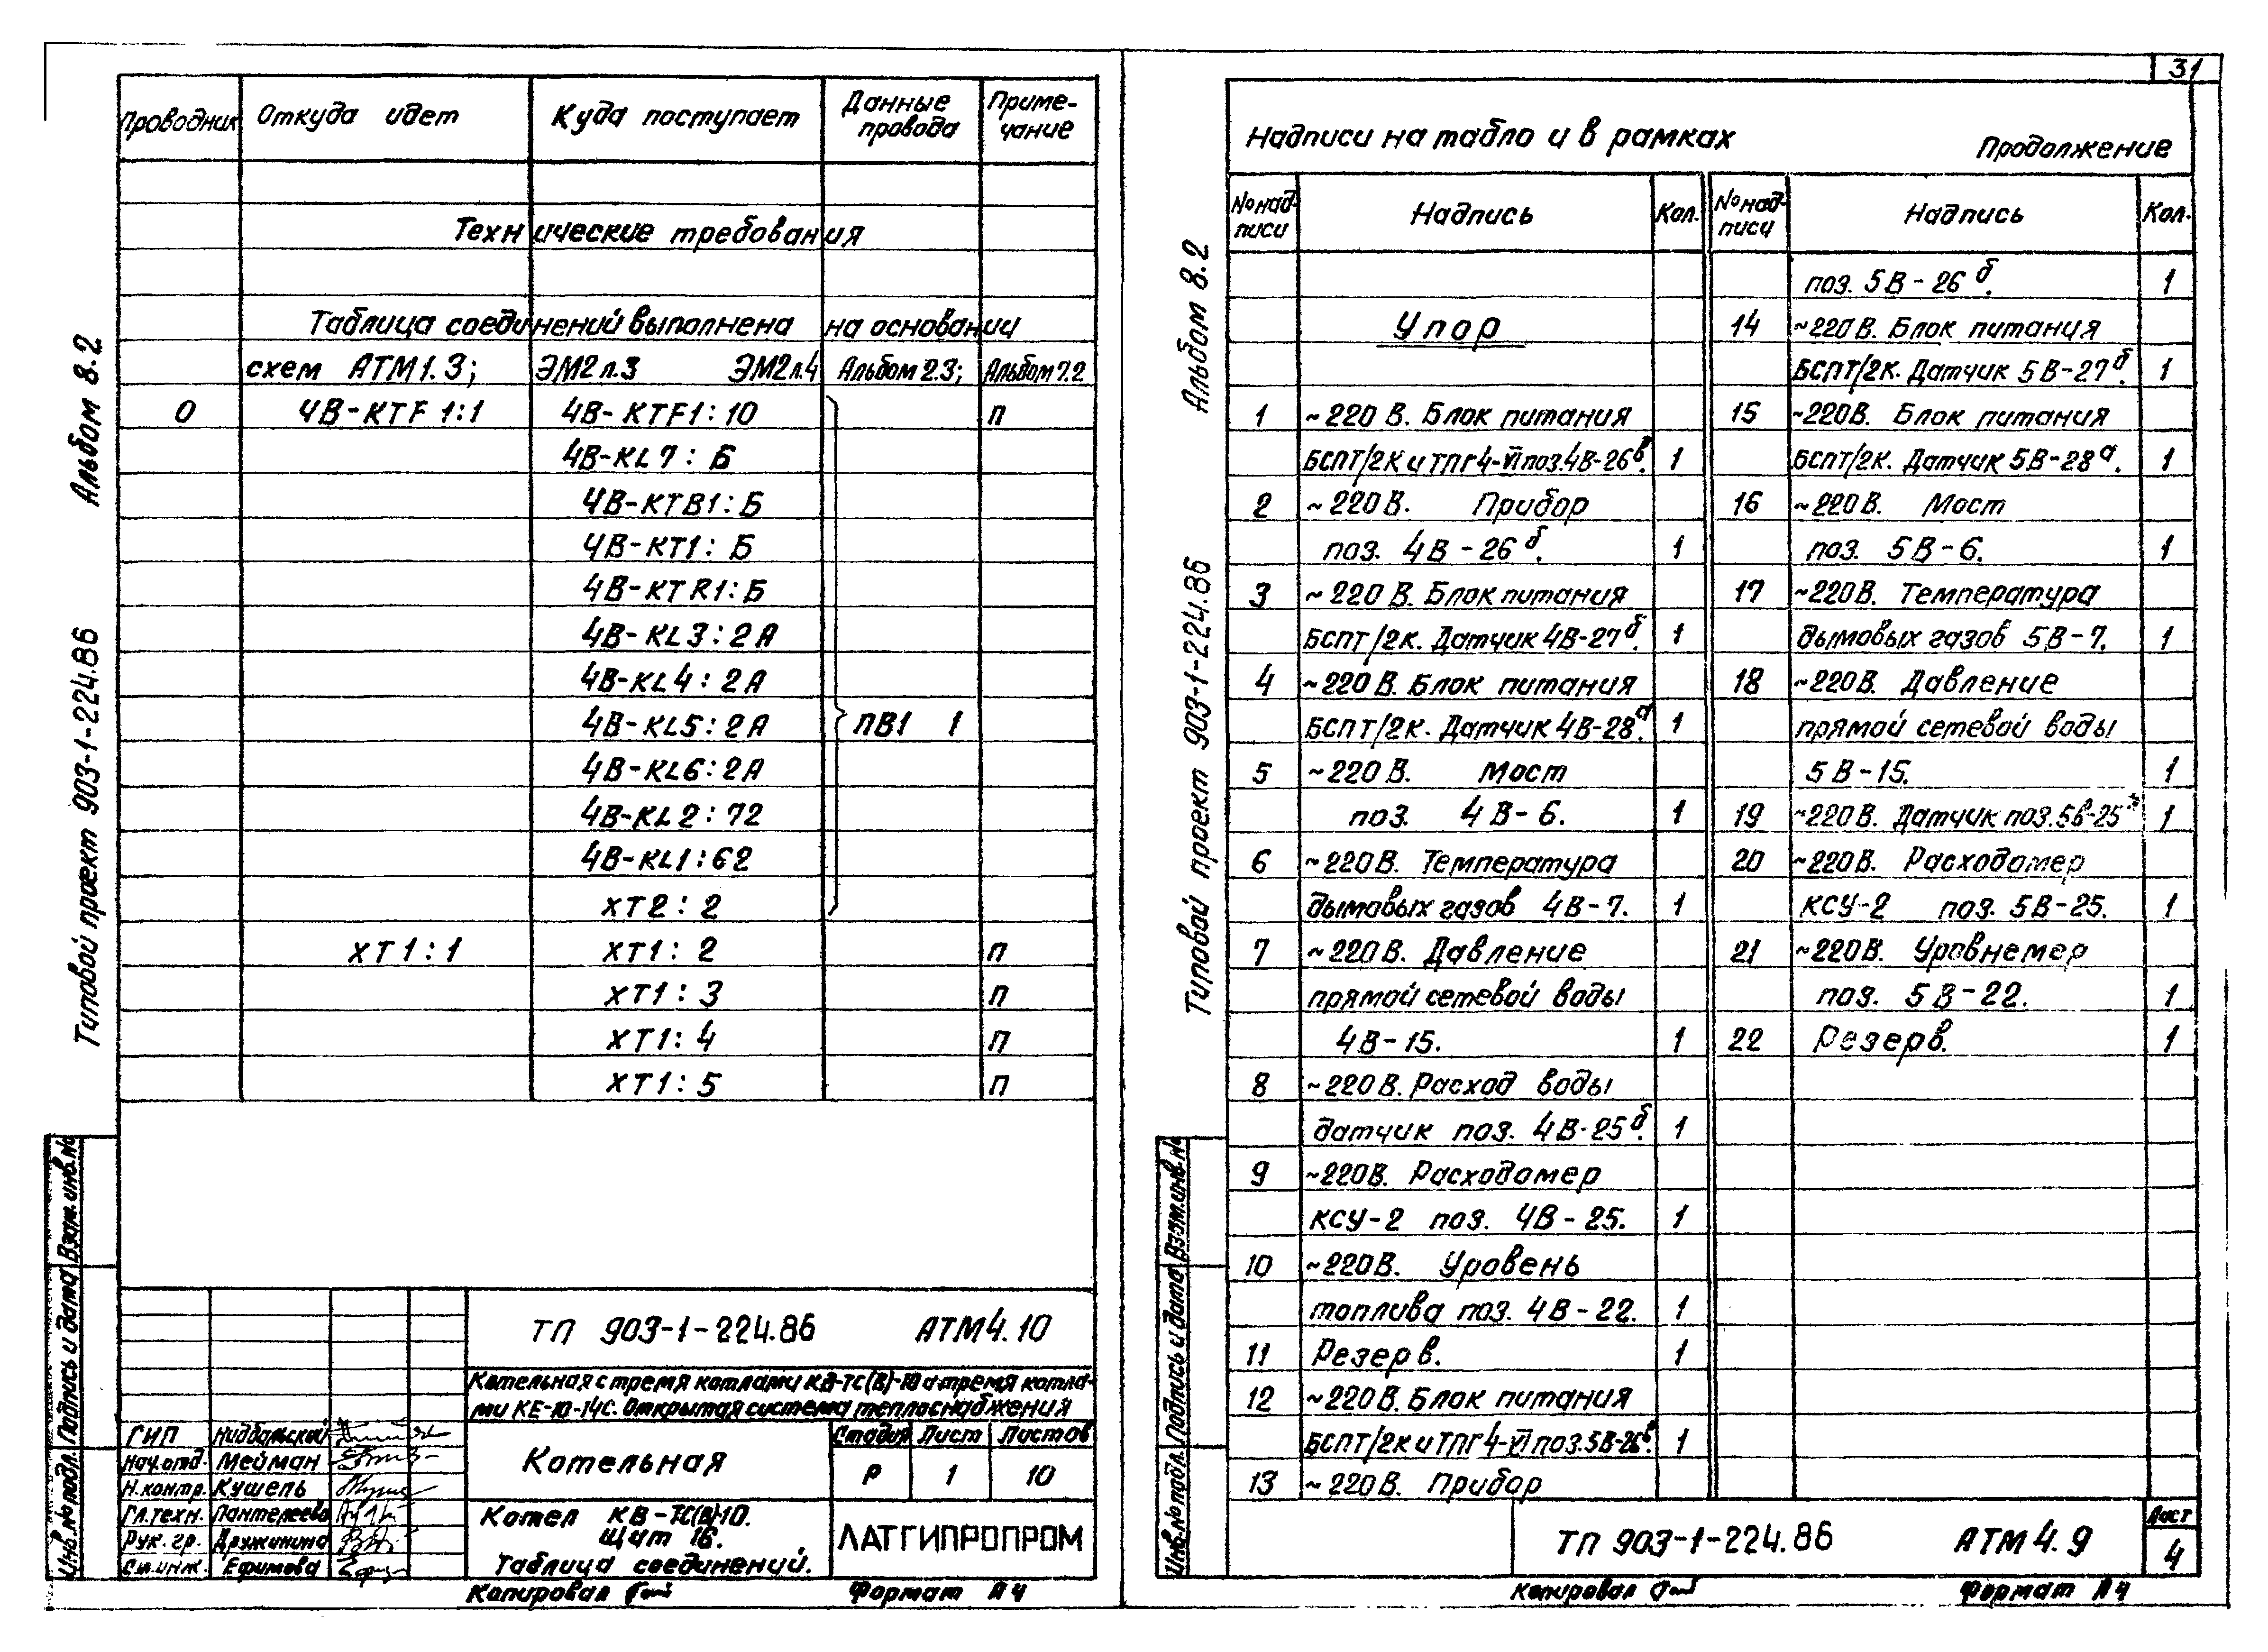 31
Альбом 8.2
Типовой проект 903-1-224.86
Проводник Откуда идет Куда поступает Данные провода Приме-чание
Технические требования
Таблица соединений выполнена на основании
схем АТМ1.3; ЭМ2л.3 ЭМ2л.4 Альбом 2.3; Альбом 7.2
0 4В-КТF 1:1 4В-КТF1:10 п
4В-KL7:Б
4В-КТВ1:Б
4В-КТ1:Б
4В-КТR1:Б
4В-KL3:2А
4В-KL4:2А
4В-KL5:2А ПВ1 1
4В-KL6:2А
4В-KL2:72
4В-KL1:62
ХТ2:2
ХТ1:1 ХТ1:2 п
ХТ1:3 п
ХТ1:4 п
ХТ1:5 п
Инв.№ подл. Подпись и дата Взам.инв.№
ТП 903-1-224.86 АТМ4.10
Котельная с тремя котлами КВ-ТС(В)-10 и тремя котла-
ми КЕ-10-14С. Открытая система теплоснабжения
ГИП
Нач.отд. Мейман
Н.контр. Кушель
Гл.техн. Пантелеева
Рук. гр. Дружинина
Ст.инж. Ефимова
Котельная
Стадия Лист Листов
Р 1 10
Котел КВ-ТС(В)-10.
Щит 16.
Таблица соединений.
ЛАТГИПРОПРОМ
Копировал Формат А4
Альбом 8.2
Типовой проект 903-1-224.86
Надписи на табло и в рамках Продолжение
№ над-писи Надпись Кол. № над-писи Надпись Кол.
Упор
1 ~220 В. Блок питания
БСПТ/2К и ТПГ4-VI поз.4В-26в. 1
2 ~220 В. Прибор
поз. 4В-26б. 1
3 ~220 В. Блок питания
БСПТ/2К. Датчик 4В-27б. 1
4 ~220 В. Блок питания
БСПТ/2К. Датчик 4В-28а. 1
5 ~220 В. Мост
поз. 4В-6. 1
6 ~220В. Температура
дымовых газов 4В-7. 1
7 ~220В. Давление
прямой сетевой воды
4В-15. 1
8 ~220 В. Расход воды
датчик поз. 4В-25б. 1
9 ~220В. Расходомер
КСУ-2 поз. 4В-25. 1
10 ~220В. Уровень
топлива поз. 4В-22. 1
11 Резерв. 1
12 ~220 В. Блок питания
БСПТ/2К и ТПГ4-VI поз.5В-26в. 1
13 ~220 В. Прибор
поз. 5В-26б. 1
14 ~220 В. Блок питания
БСПТ/2К. Датчик 5В-27б. 1
15 ~220В. Блок питания
БСПТ/2К. Датчик 5В-28а. 1
16 ~220 В. Мост
поз. 5В-6. 1
17 ~220В. Температура
дымовых газов 5В-7. 1
18 ~220В. Давление
прямой сетевой воды
5В-15. 1
19 ~220 В. Датчик поз.5в-25 1
20 ~220В. Расходомер
КСУ-2 поз. 5В-25. 1
21 ~220В. Уровнемер
поз. 5В-22. 1
22 Резерв. 1
Инв.№ подл. Подпись и дата Взам.инв.№
ТП 903-1-224.86 АТМ4.9
Лист
4
Копировал Формат А4